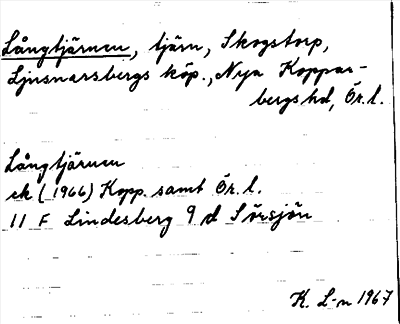 Långtjärnen, tjärn, Skogstorp,
Ljusnarsbergs köp., Nya Koppar-
bergs hd, Ör. l.
Långtjärnen
ek (1966) Kopp. samt Ör. l.
11 F Lindesberg 9 d Sörsjön
K. L-n 1967